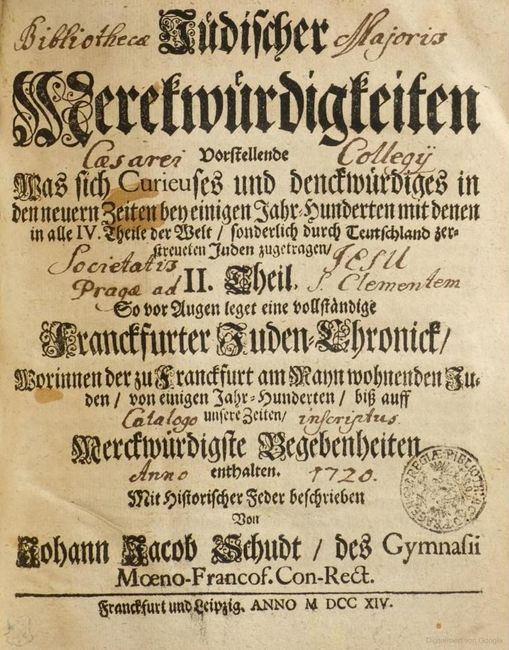 Bibliothecæ Jüdischer Majoris
Merckwürdigkeiten
Cæsarei Vorstellende Collegij
Was sich Curieuses und denckwürdiges in
den neuern Zeiten bey einigen Jahr-Hunderten mit denen
in alle IV. Theile der Welt / sonderlich durch Teutschland zer-
streueten Juden zugetragen /
Societatis JESU
II. Theil.
Pragæ ad S. Clementem
So vor Augen leget eine vollständige
Franckfurter Juden-Chronick /
Worinnen der zu Franckfurt am Mayn wohnenden Ju-
den / von einigen Jahr-Hunderten / biß auff
Catalogo unsere Zeiten / inscriptus
Merckwürdigste Begebenheiten
Anno enthalten. 1720.
Mit Historischer Feder beschrieben
Von
Johann Jacob Schudt / des Gymnasii
Mœno-Francof. Con-Rect.
Franckfurt und Leipzig. ANNO M DCC XIV.
Digitalisiert von Google